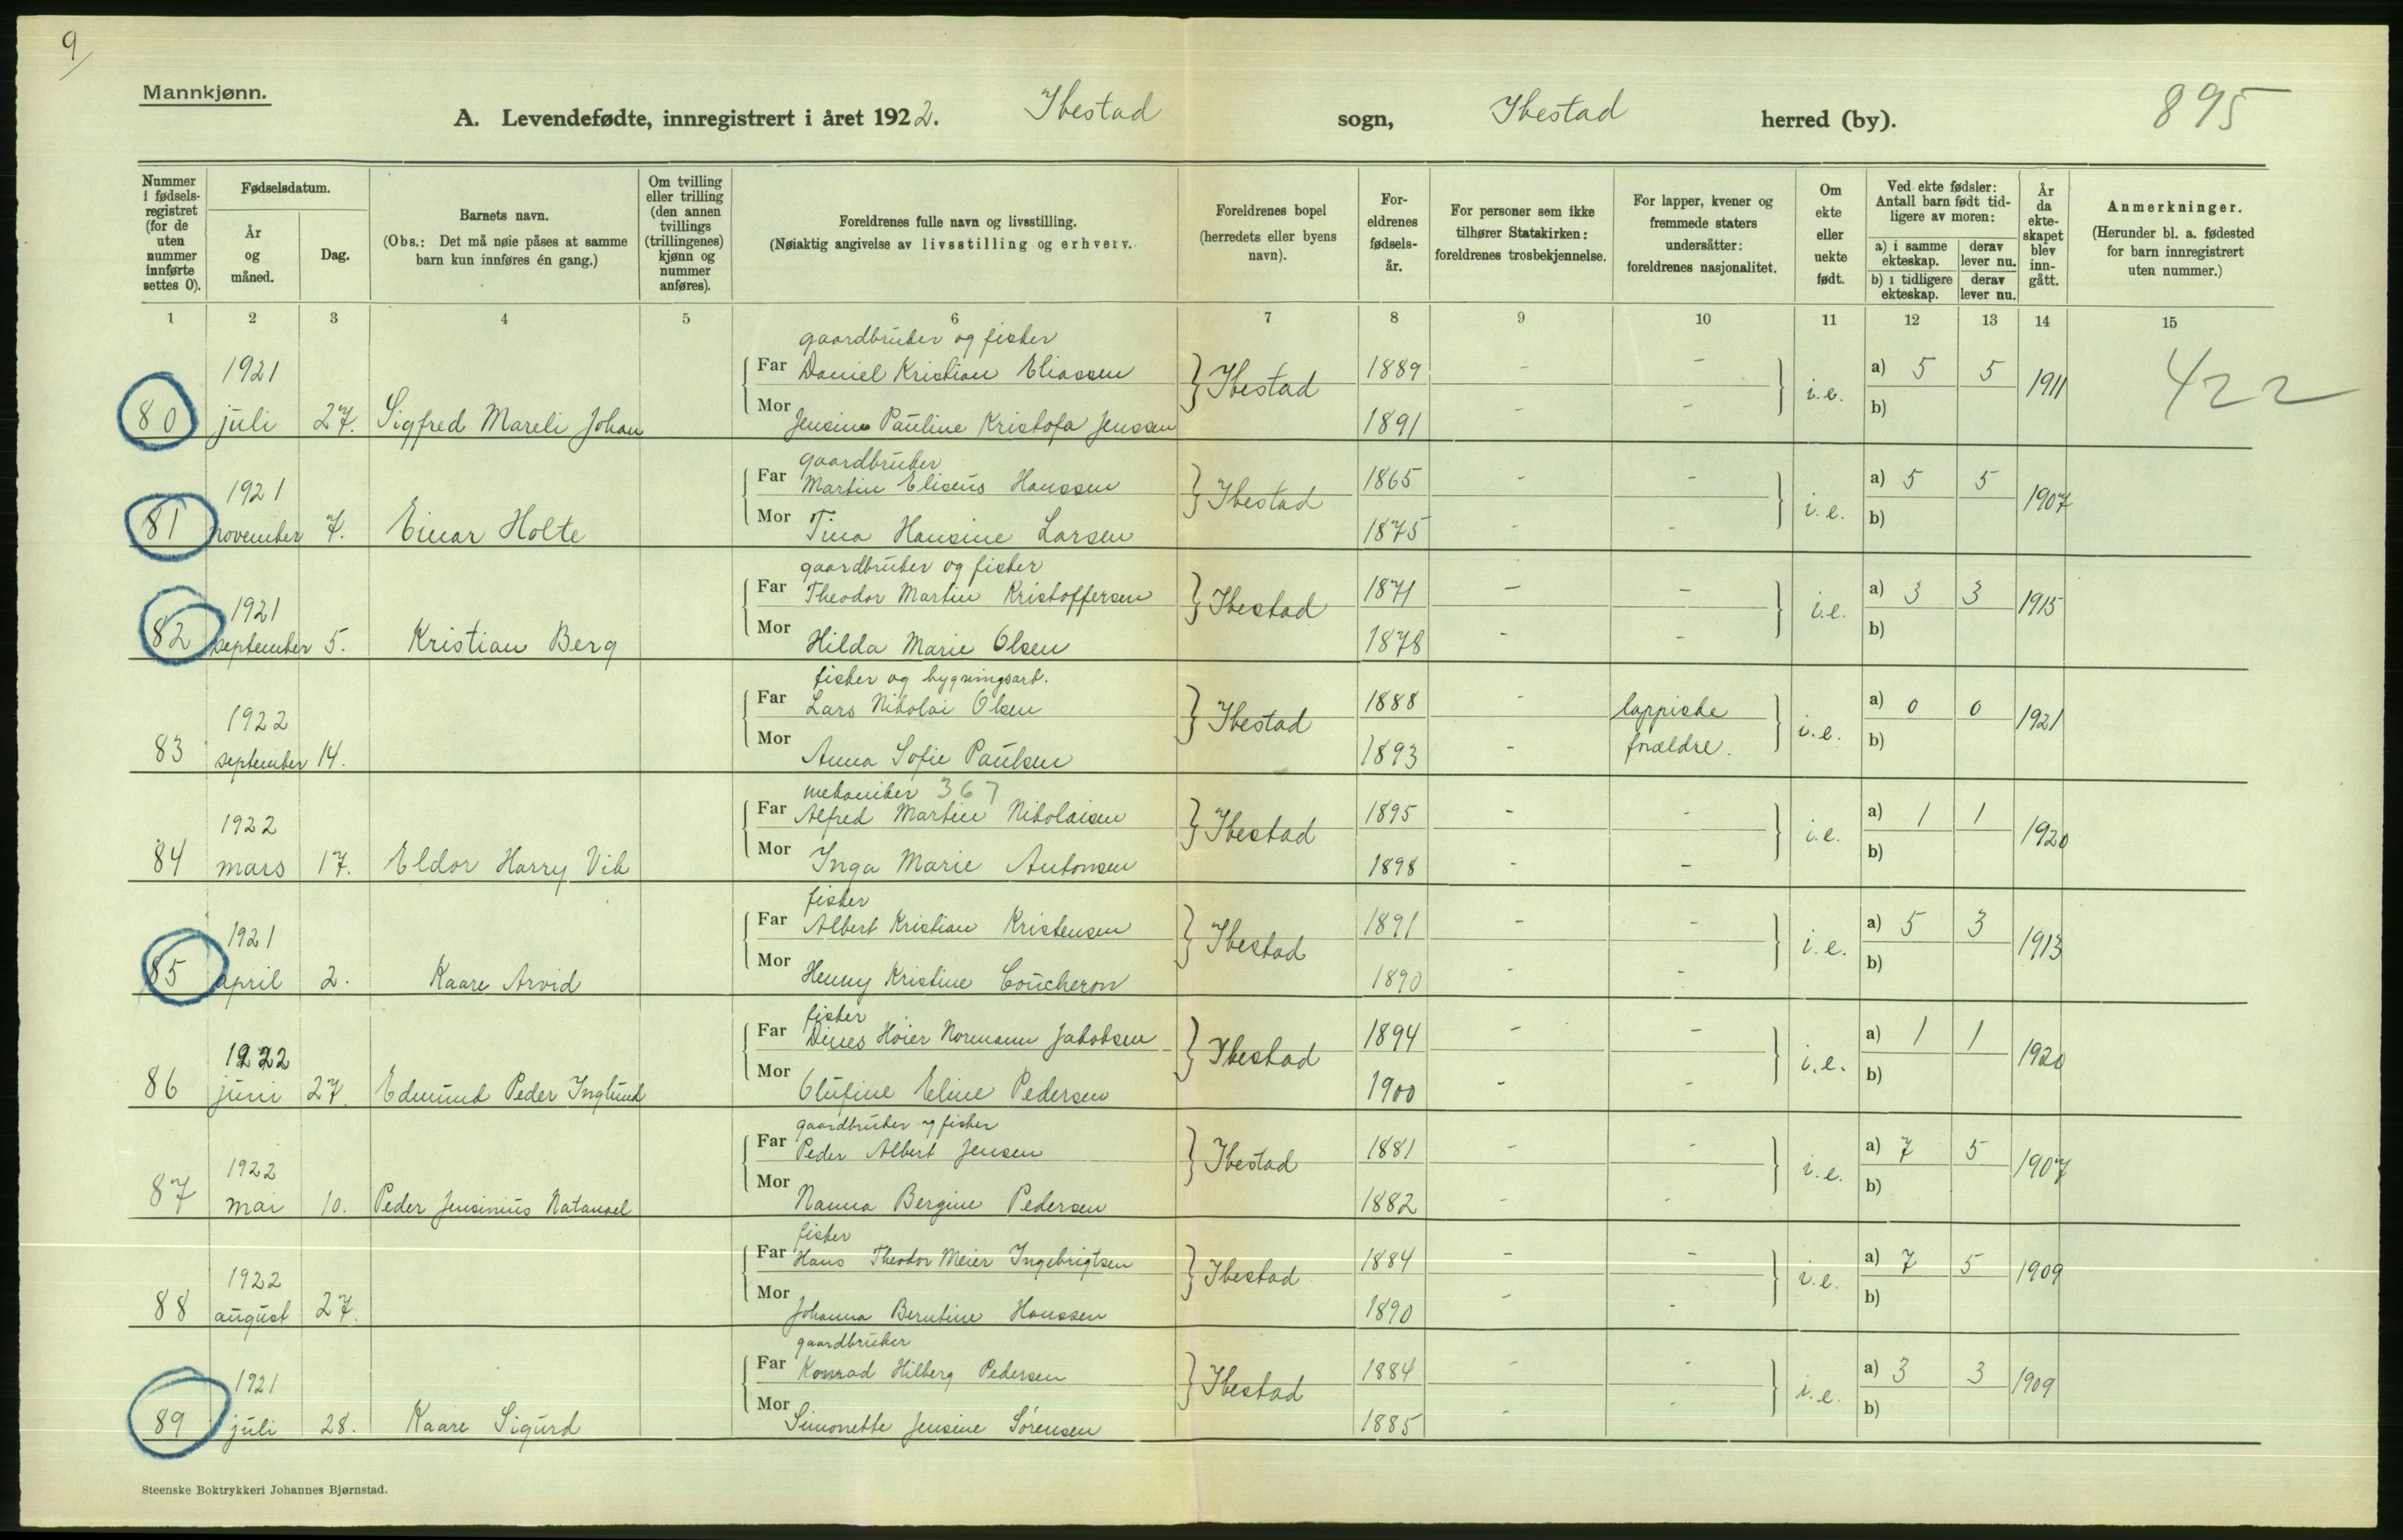 9
Mannkjønn.
A. Levendefødte, innregistrert i året 1922. Ibestad sogn, Ibestad herred (by). 895
Nummer i fødselsregistret (for de uten nummer innførte settes 0).
Fødselsdatum.
År og måned.
Dag.
Barnets navn.
(Obs.: Det må nøie påses at samme barn kun innføres én gang.)
Om tvilling eller trilling (den annen tvillings (trillingenes) kjønn og nummer anføres).
Foreldrenes fulle navn og livsstilling.
(Nøiaktig angivelse av livsstilling og erhverv.
Foreldrenes bopel (herredets eller byens navn).
Foreldrenes fødselsår.
For personer som ikke tilhører Statskirken: foreldrenes trosbekjennelse.
For lapper, kvener og fremmede staters undersåtter: foreldrenes nasjonalitet.
Om ekte eller uekte født.
Ved ekte fødsler: Antall barn født tidligere av moren:
a) i samme ekteskap. derav lever nu.
b) i tidligere ekteskap. derav lever nu.
År da ekteskapet blev inngått.
Anmerkninger.
(Herunder bl. a. fødested for barn innregistrert uten nummer.)
1 2 3 4 5 6 7 8 9 10 11 12 13 14 15
gaardbruker og fisker
1921 Far Daniel Kristian Eliassen Ibestad 1889 - - i.e. a) 5 5 1911 422
80 juli 27. Sigfred Mareli Johan Mor Jensine Pauline Kristofa Jenssen 1891 - - b)
gaardbruker
1921 Far Martin Eliseus Hanssen Ibestad 1865 - - i.e. a) 5 5 1907
81 november 7. Einar Holte Mor Tina Hansine Larsen 1875 - - b)
gaardbruker og fisker
1921 Far Theodor Martin Kristoffersen Ibestad 1871 - - i.e. a) 3 3 1915
82 september 5. Kristian Berg Mor Hilda Marie Olsen 1878 - - b)
fisker og bygningsarb.
1922 Far Lars Nikolai Olsen Ibestad 1888 - lappiske i.e. a) 0 0 1921
83 september 14. Mor Anna Sofie Paulsen 1893 - forældre. b)
mekaniker 367
1922 Far Alfred Martin Nikolaisen Ibestad 1895 - - i.e. a) 1 1 1920
84 mars 17. Eldor Harry Vik Mor Inga Marie Antonsen 1898 - - b)
fisker
1921 Far Albert Kristian Kristensen Ibestad 1891 - - i.e. a) 5 3 1913
85 april 2. Kaare Arvid Mor Henny Kristine Coucheron 1890 - - b)
fisker
1922 Far Dines Höier Normann Jakobsen Ibestad 1894 - - i.e. a) 1 1 1920
86 juni 27. Edmund Peder Inglund Mor Olufine Eline Pedersen 1900 - - b)
gaardbruker og fisker
1922 Far Peder Albert Jensen Ibestad 1881 - - i.e. a) 7 5 1907
87 mai 10. Peder Jensinius Natanael Mor Nanna Bergine Pedersen 1882 - - b)
fisker
1922 Far Hans Theodor Meier Ingebrigtsen Ibestad 1884 - - i.e. a) 7 5 1909
88 august 27. Mor Johanna Berntine Hanssen 1890 - - b)
gaardbruker
1921 Far Konrad Hilberg Pedersen Ibestad 1884 - - i.e. a) 3 3 1909
89 juli 28. Kaare Sigurd Mor Simonette Jensine Sörensen 1885 - - b)
Steenske Boktrykkeri Johannes Bjørnstad.